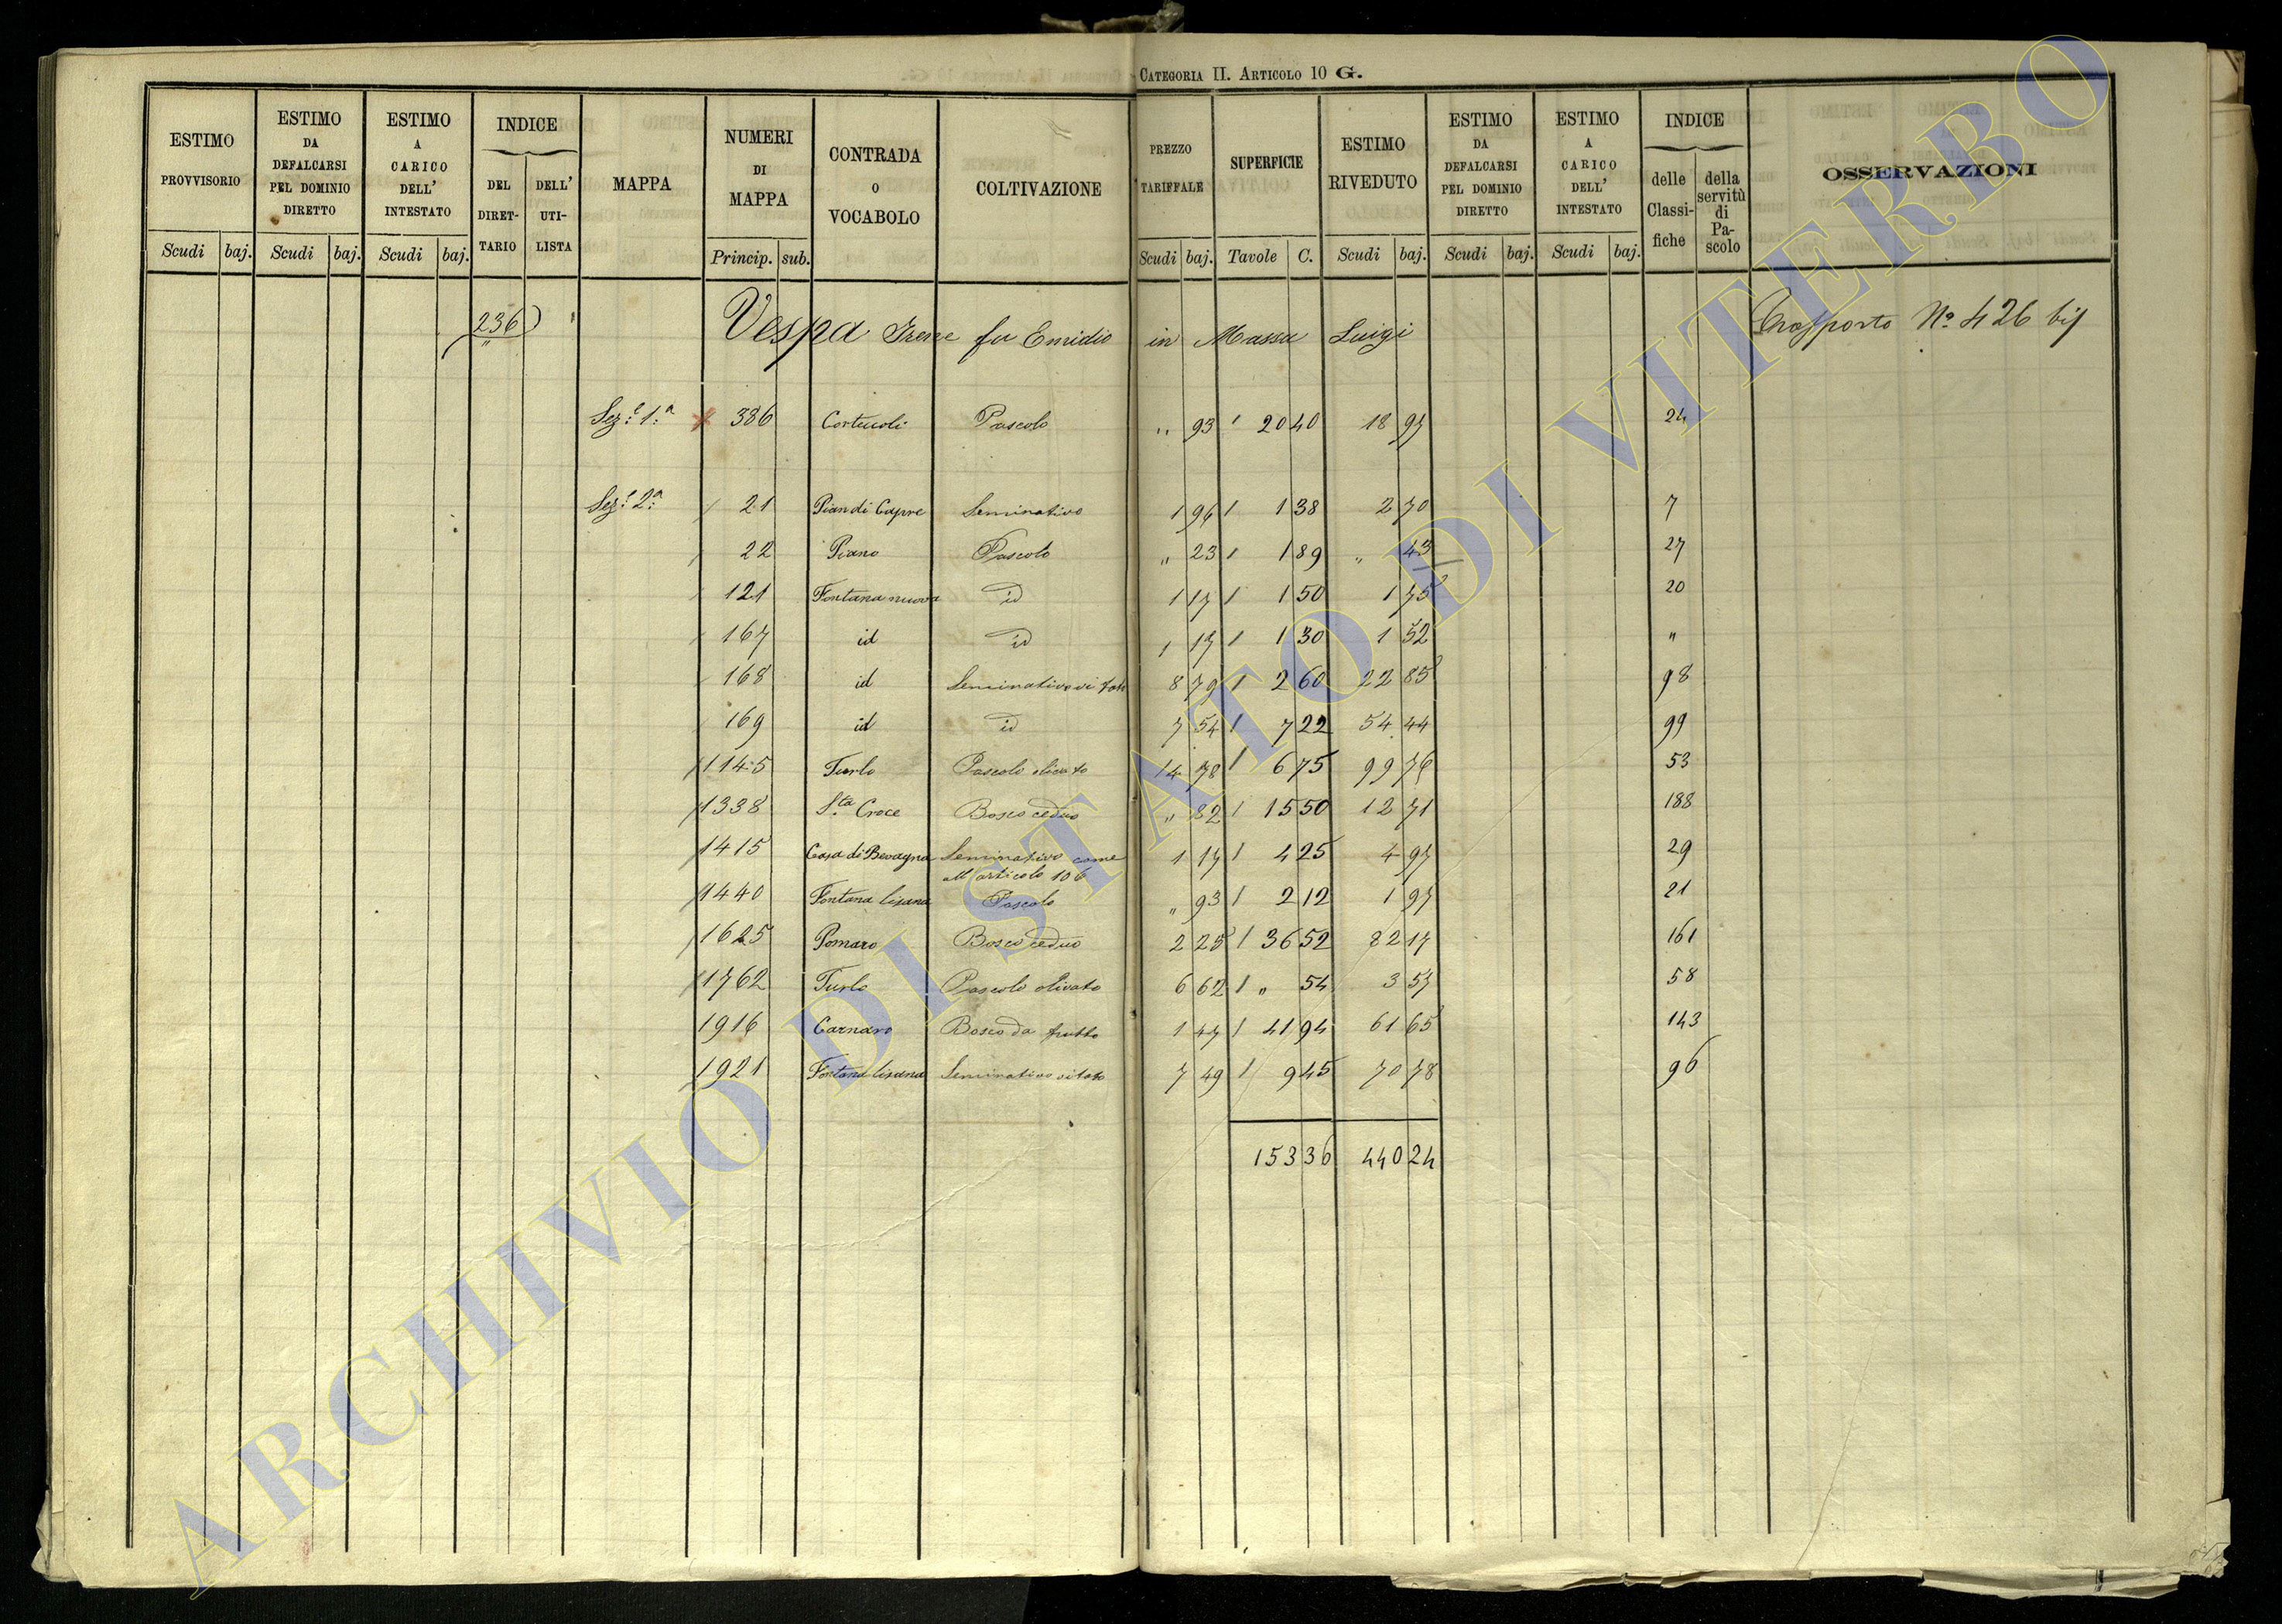 CATEGORIA II. ARTICOLO 10 G.
ESTIMO PROVVISORIO Scudi baj.
ESTIMO DA DEFALCARSI PEL DOMINIO DIRETTO Scudi baj.
ESTIMO A CARICO DELL' INTESTATO Scudi baj.
INDICE DEL DIRET-TARIO DELL' UTI-LISTA
MAPPA
NUMERI DI MAPPA Princip. sub.
CONTRADA O VOCABOLO
COLTIVAZIONE
PREZZO TARIFFALE Scudi baj.
SUPERFICIE Tavole C.
ESTIMO RIVEDUTO Scudi baj.
ESTIMO DA DEFALCARSI PEL DOMINIO DIRETTO Scudi baj.
ESTIMO A CARICO DELL' INTESTATO Scudi baj.
INDICE delle Classi-fiche della servitù di Pa-scolo
OSSERVAZIONI
236 Vespa Irene fu Emidio in Massa Luigi Trasporto Nº 426 bis
Sez.e 1.a 386 Pascolo " 93 20 40 18 97 24
Sez.e 2.a 21 Pian di Capre Seminativo 1 96 1 38 2 70 7
22 Piano Pascolo " 23 1 89 " 43 27
121 Fontana nuova id 1 17 1 50 1 75 20
167 id id 1 17 1 30 1 52 "
168 id Seminativo vitato 8 79 2 60 22 85 98
169 id id 7 54 7 22 54 44 99
1145 Turlo Pascolo olivato 14 78 6 75 99 76 53
1338 S.ta Croce Bosco ceduo " 82 15 50 12 71 188
1415 Casa di Bevagna Seminativo come 1 17 4 25 4 97 29
all'articolo 106
1440 Fontana lisana Pascolo " 93 2 12 1 97 21
1625 Pomaro Bosco ceduo 2 25 36 52 82 17 161
1762 Turlo Pascolo olivato 6 62 " 54 3 57 58
1916 Carnaro Bosco da frutto 1 47 41 94 61 65 143
1921 Fontana lisana Seminativo vitato 7 49 9 45 70 78 96
153 36 440 24
ARCHIVIO DI STATO DI VITERBO